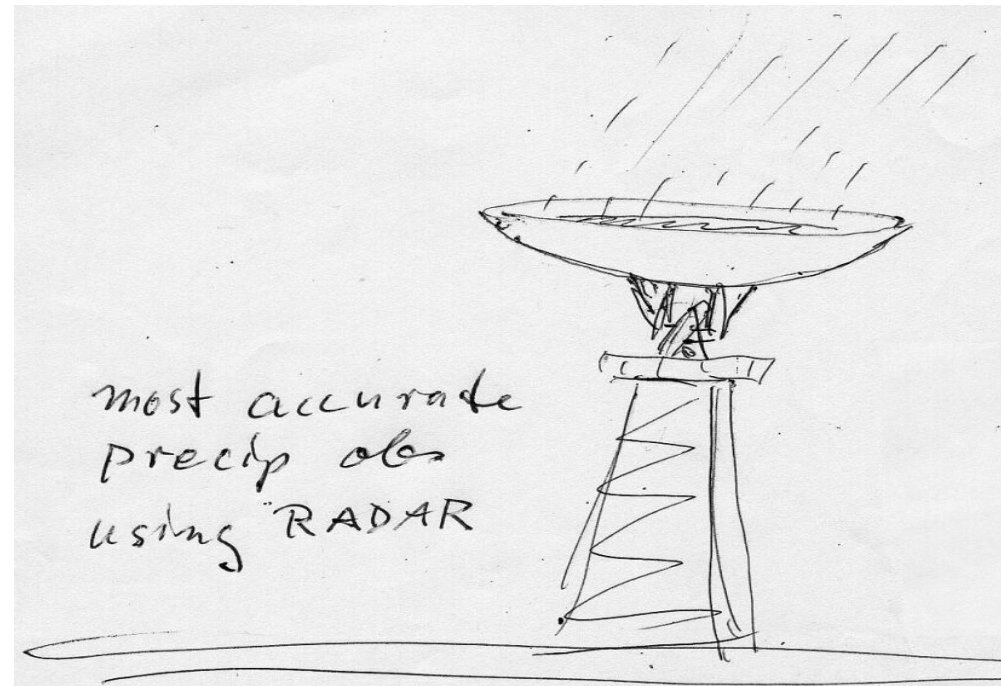 most accurate
precip obs
using RADAR